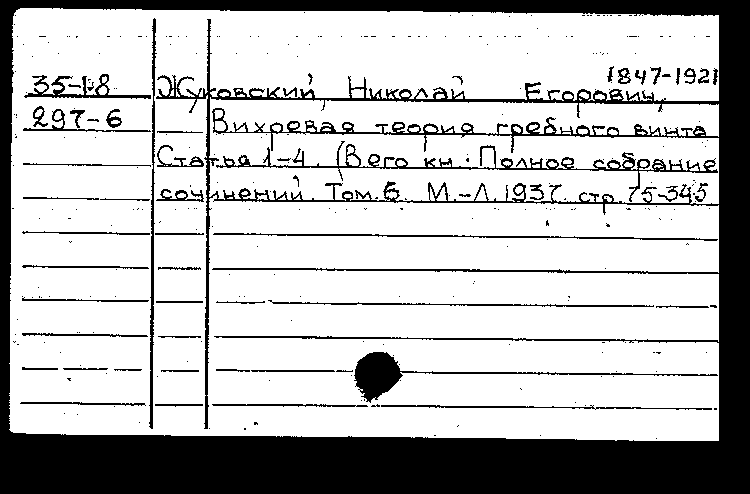 1847-1921
35-18 Жуковский, Николай Егорович,
297-6 Вихревая теория гребного винта
Статья 1-4. (В его кн.: Полное собрание
сочинений. Том. 6. М.-Л. 1937. стр. 75-345